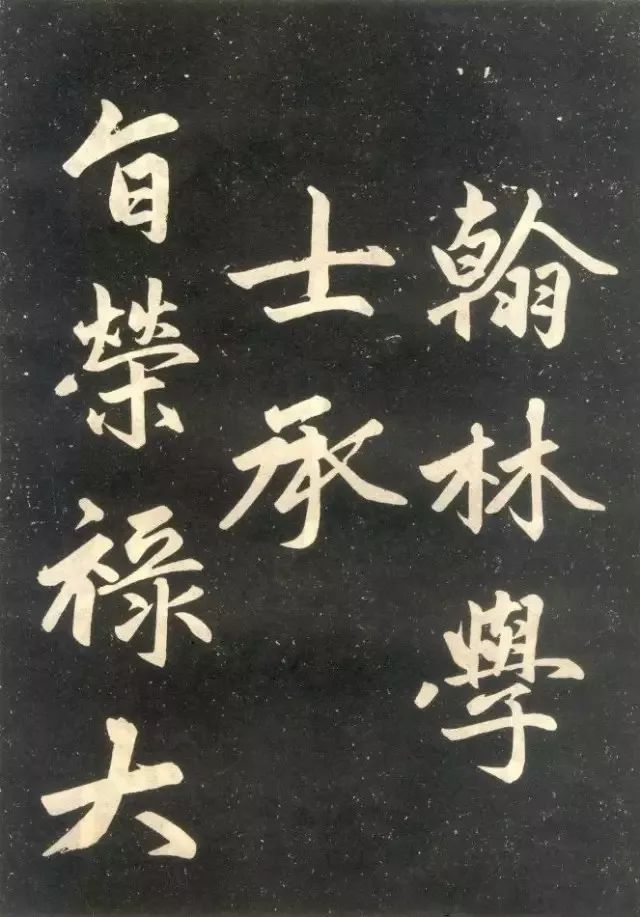 翰林學
士承
旨榮祿大